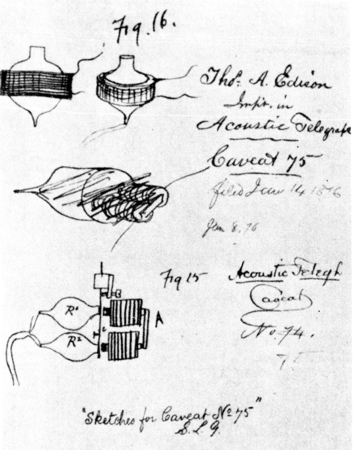 Fig. 16.
Thos. A. Edison
Impt. in
Acoustic Telegraph
Caveat 75
filed Jan 14 1876
Jan 8. 76
Fig 15
Acoustic Telegh
Caveat
No. 74.
75
B
R¹
R²
c
A
"Sketches for Caveat No 75"
S. L. G.